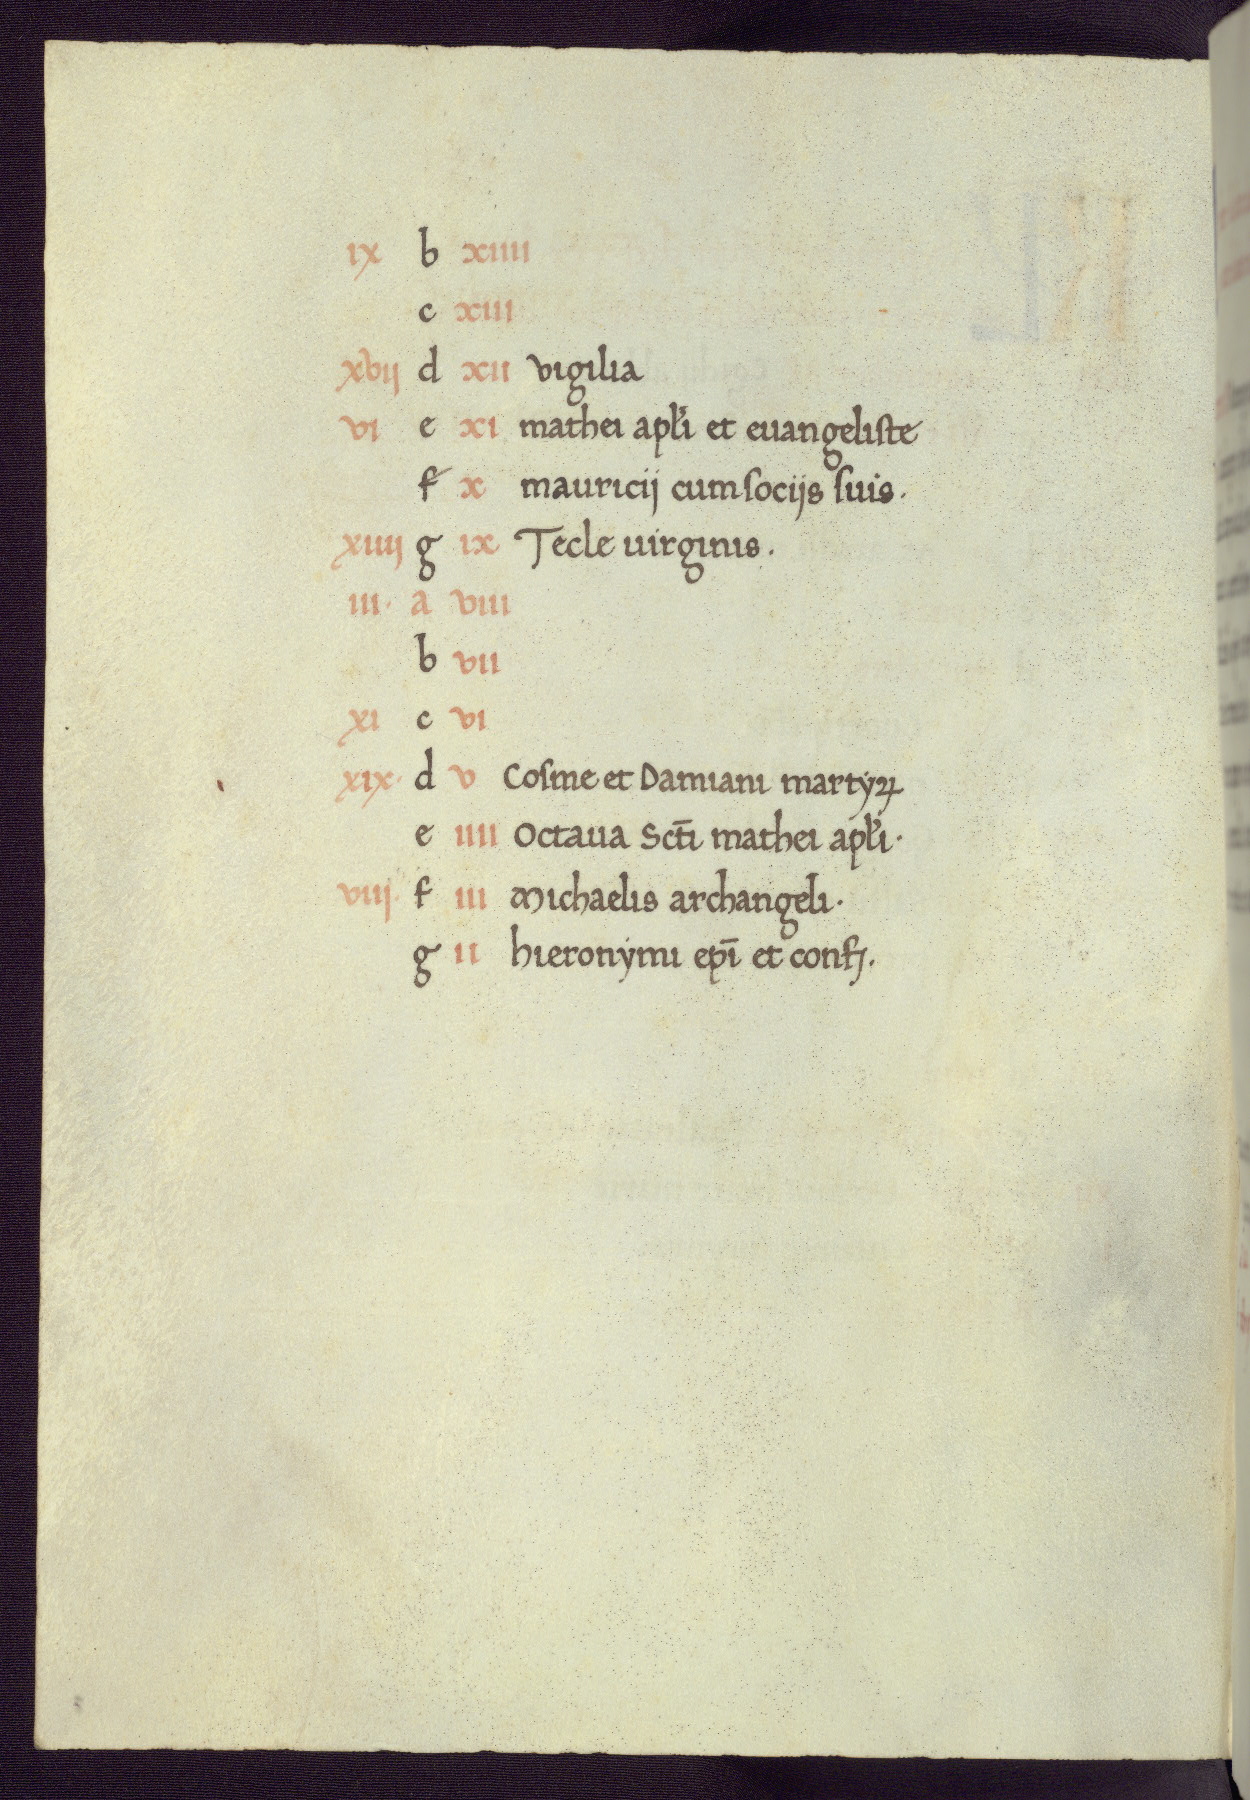 ix b xiiii
c xiii
xvij d xii vigilia
vi e xi mathei apl'i et euangeliste
f x mauricij cum socijs suis.
xiiij g ix Tecle uirginis.
iii. a viii
b vii
xi c vi
xix. d v Cosme et Damiani martyꝝ
e iiii Octaua Sct̄i mathei apl'i.
viij. f iii Michaelis archangeli.
g ii hieronymi ep̄i et conf.